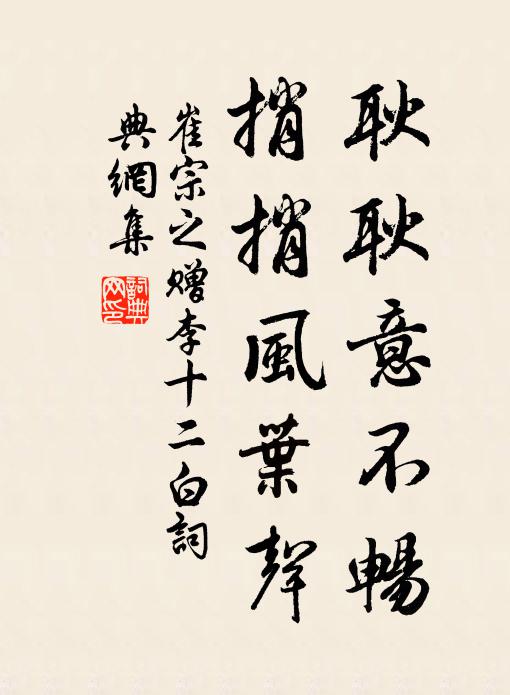 耿耿意不暢
捎捎風葉聲
崔宗之贈李十二白詞
典網集
詞典
网印